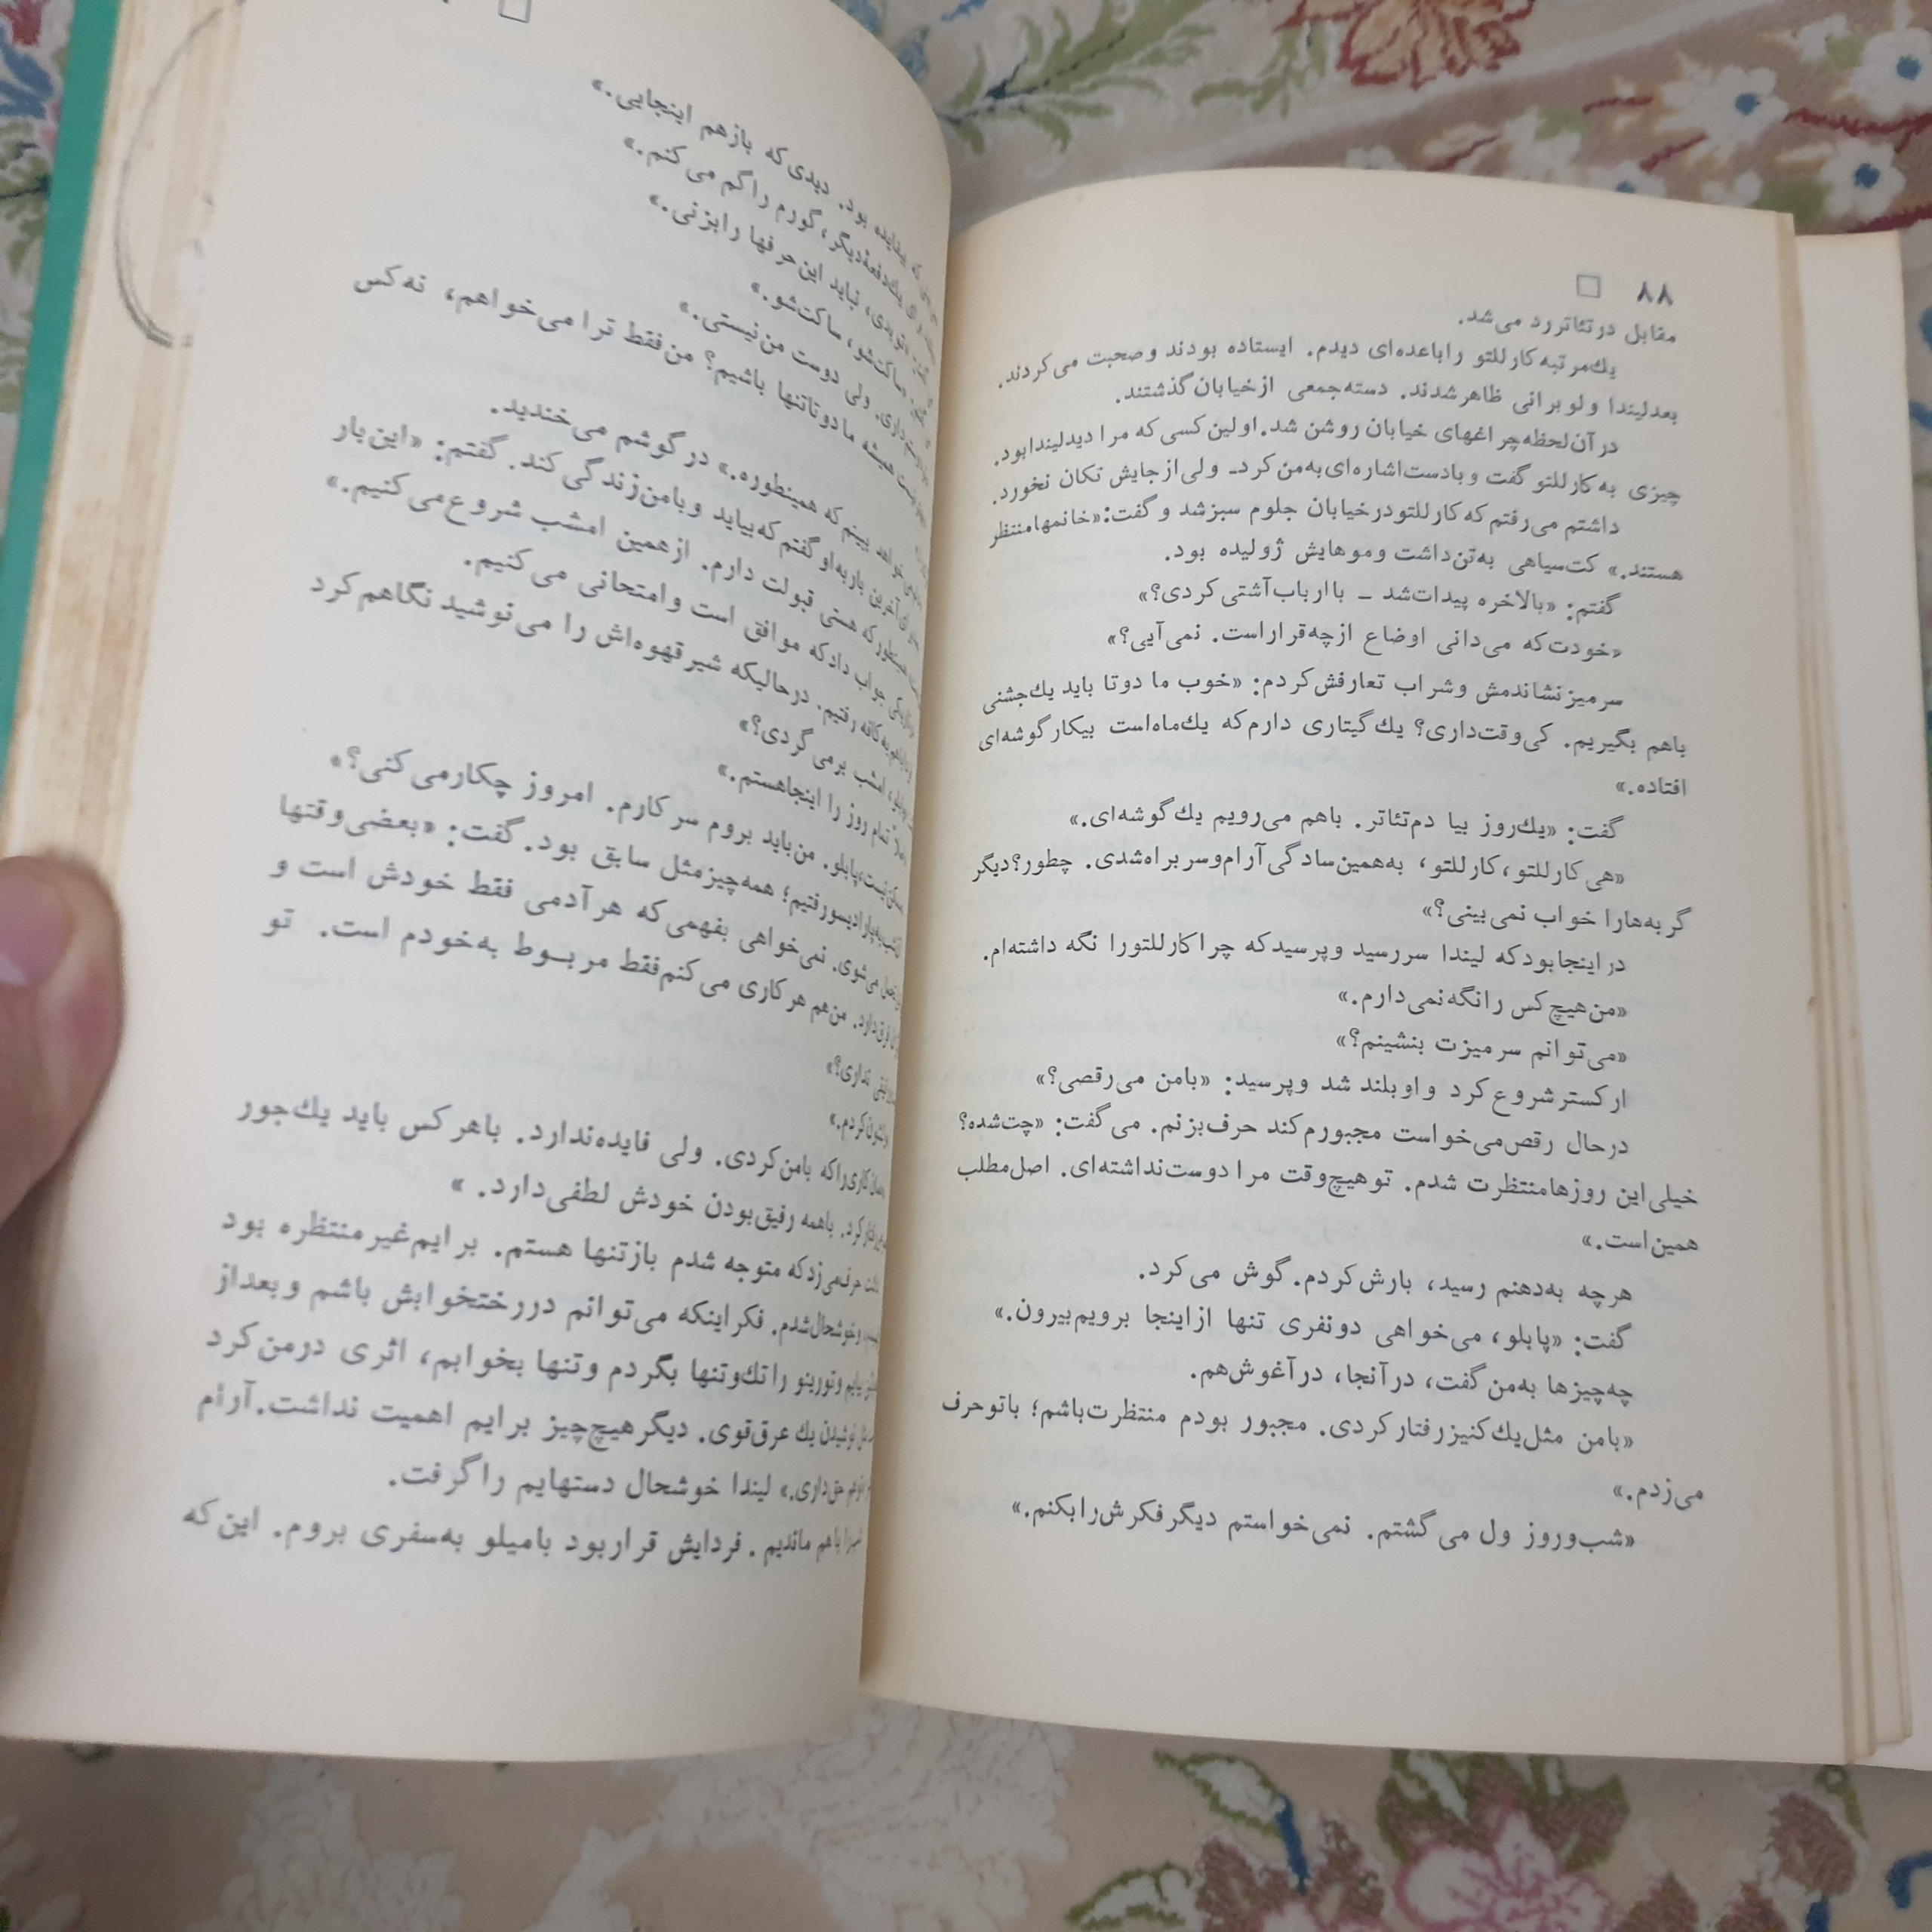 ۸۸ □
مقابل در تئاتر رد می‌شد.
یك‌مرتبه کارللتو را با عده‌ای دیدم. ایستاده بودند و صحبت می‌کردند.
بعد لیندا و لوبرانی ظاهر شدند. دسته‌جمعی از خیابان گذشتند.
در آن لحظه چراغهای خیابان روشن شد. اولین کسی که مرا دید لیندا بود.
چیزی به کارللتو گفت و با دست اشاره‌ای به من کرد ـ ولی از جایش تکان نخورد.
داشتم می‌رفتم که کارللتو در خیابان جلوم سبز شد و گفت: «خانمها منتظر
هستند.» کت سیاهی به‌تن داشت و موهایش ژولیده بود.
گفتم: «بالاخره پیدات شد ــ با ارباب آشتی کردی؟»
«خودت که می‌دانی اوضاع از چه قرار است. نمی‌آیی؟»
سر میز نشاندمش و شراب تعارفش کردم: «خوب ما دوتا باید یك جشنی
باهم بگیریم. کی وقت داری؟ یك گیتاری دارم که یك ماه است بیکار گوشه‌ای
افتاده.»
گفت: «یك روز بیا دم تئاتر. باهم می‌رویم یك گوشه‌ای.»
«هی کارللتو، کارللتو، به‌همین سادگی آرام و سربراه شدی. چطور؟ دیگر
گربه‌ها را خواب نمی‌بینی؟»
در اینجا بود که لیندا سر رسید و پرسید که چرا کارللتو را نگه داشته‌ام.
«من هیچ کس را نگه نمی‌دارم.»
«می‌توانم سر میزت بنشینم؟»
ارکستر شروع کرد و او بلند شد و پرسید: «بامن می‌رقصی؟»
درحال رقص می‌خواست مجبورم کند حرف بزنم. می‌گفت: «چت شده؟
خیلی این روزها منتظرت شدم. تو هیچ وقت مرا دوست نداشته‌ای. اصل مطلب
همین است.»
هرچه به‌دهنم رسید، بارش کردم. گوش می‌کرد.
گفت: «پابلو، می‌خواهی دونفری تنها از اینجا برویم بیرون.»
چه چیزها به من گفت، در آنجا، در آغوش هم.
«بامن مثل یك کنیز رفتار کردی. مجبور بودم منتظرت باشم؛ باتو حرف
می‌زدم.»
«شب و روز ول می‌گشتم. نمی‌خواستم دیگر فکرش را بکنم.»
□
که بیفایده بود. دیدی که بازهم اینجایی.»
یك دفعهٔ دیگر، گورم را گم می‌کنم.»
نباید این حرفها را بزنی.»
ساکت شو، ساکت شو.»
ولی دوست من نیستی.»
همیشه ما دوتا تنها باشیم؟ من فقط ترا می‌خواهم، نه کس
ببینم که همینطوره.» در گوشم می‌خندید.
آخرین بار به‌او گفتم که بیاید و بامن زندگی کند. گفتم: «این بار
همینطور که هستی قبولت دارم. از همین امشب شروع می‌کنیم.»
جواب داد که موافق است و امتحانی می‌کنیم.
به کافه رفتیم. درحالیکه شیرقهوه‌اش را می‌نوشید نگاهم کرد
امشب برمی‌گردی؟»
تمام روز را اینجا هستم.»
پابلو. من باید بروم سر کارم. امروز چکار می‌کنی؟»
پارادیسو رفتیم؛ همه چیز مثل سابق بود. گفت: «بعضی وقتها
می‌شوی. نمی‌خواهی بفهمی که هر آدمی فقط خودش است و
فرق دارد. من هم هر کاری می‌کنم فقط مربوط به خودم است. تو
نداری؟»
کردم.»
کاری را که بامن کردی. ولی فایده ندارد. باهر کس باید یك جور
کرد. باهمه رفیق بودن خودش لطفی دارد.»
حرف می‌زد که متوجه شدم باز تنها هستم. برایم غیرمنتظره بود
و خوشحال شدم. فکر اینکه می‌توانم در رختخوابش باشم و بعد از
بیایم و تورینو را تك و تنها بگردم و تنها بخوابم، اثری در من کرد
نوشیدن یك عرق قوی. دیگر هیچ چیز برایم اهمیت نداشت. آرام
حق داری.» لیندا خوشحال دستهایم را گرفت.
باهم ماندیم. فردایش قرار بود بامیلو به سفری بروم. این که